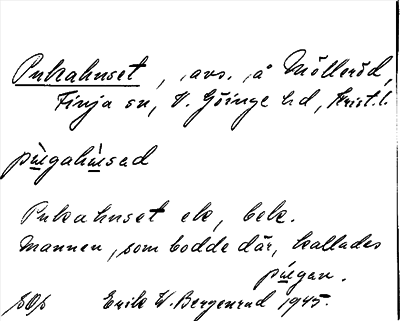 Pukahuset, avs., å Mölleröd,
Finja sn, V. Göinge hd, Krist.l.
pùgahùsad
Pukahuset ek, bek.
Mannen, som bodde där, kallades
pùgan.
Erik W. Bergenrud 1945.